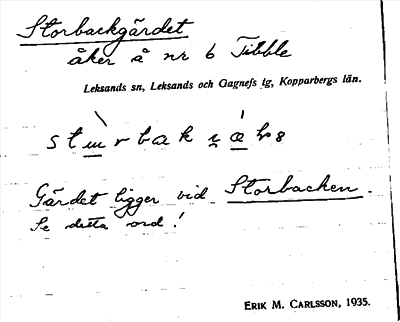 Storbackgärdet
åker å nr 6 Tibble
Leksands sn, Leksands och Gagnefs tg, Kopparbergs län.
Gärdet ligger vid Storbacken.
Se detta ord!
ERIK M. CARLSSON, 1935.